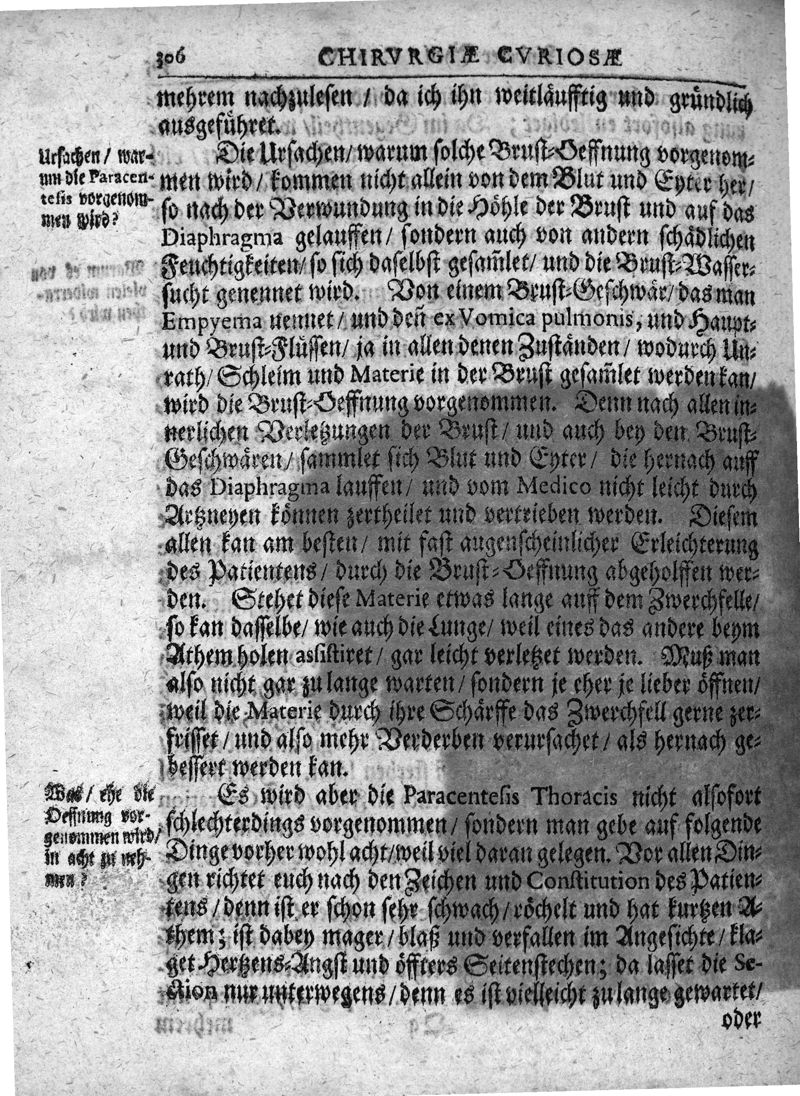 306 CHIRVRGIÆ CVRIOSÆ
mehrem nachzulesen / da ich ihn weitläufftig und gründlich
ausgeführet.
Ursachen / war-
um die Paracen-
tesis vorgenom-
men wird?
Die Ursachen / warum solche Brust-Oeffnung vorgenom-
men wird / kommen nicht allein von dem Blut und Eyter her /
so nach der Verwundung in die Höhle der Brust und auf das
Diaphragma gelauffen / sondern auch von andern schädlichen
Feuchtigkeiten / so sich daselbst gesam̃let / und die Brust-Wasser-
sucht genennet wird. Von einem Brust-Geschwär / das man
Empyema nennet / und den̄ ex Vomica pulmonis, und Haupt-
und Brust-Flüssen / ja in allen denen Zuständen / wodurch Un-
rath / Schleim und Materie in der Brust gesam̃let werden kan /
wird die Brust-Oeffnung vorgenommen. Denn nach allen in-
nerlichen Verletzungen der Brust / und auch bey den Brust-
Geschwären / sammlet sich Blut und Eyter / die hernach auff
das Diaphragma lauffen / und vom Medico nicht leicht durch
Artzneyen können zertheilet und vertrieben werden. Diesem
allen kan am besten / mit fast augenscheinlicher Erleichterung
des Patientens / durch die Brust-Oeffnung abgeholffen wer-
den. Stehet diese Materie etwas lange auff dem Zwerchfelle /
so kan dasselbe / wie auch die Lunge / weil eines das andere beym
Athem holen assistiret / gar leicht verletzet werden. Muß man
also nicht gar zu lange warten / sondern je eher je lieber öffnen /
weil die Materie durch ihre Schärffe das Zwerchfell gerne zer-
frisset / und also mehr Verderben verursachet / als hernach ge-
bessert werden kan.
Was / ehe die
Oeffnung vor-
genommen wird /
in acht zu neh-
men?
Es wird aber die Paracentesis Thoracis nicht alsofort
schlechterdings vorgenommen / sondern man gebe auf folgende
Dinge vorher wohl acht / weil viel daran gelegen. Vor allen Din-
gen richtet euch nach den Zeichen und Constitution des Patien-
tens / denn ist er schon sehr schwach / röchelt und hat kurtzen A-
them; ist dabey mager / blaß und verfallen im Angesichte / kla-
get Hertzens-Angst und öffters Seitenstechen; da lasset die Se-
ction nur unterwegens / denn es ist vielleicht zu lange gewartet /
oder